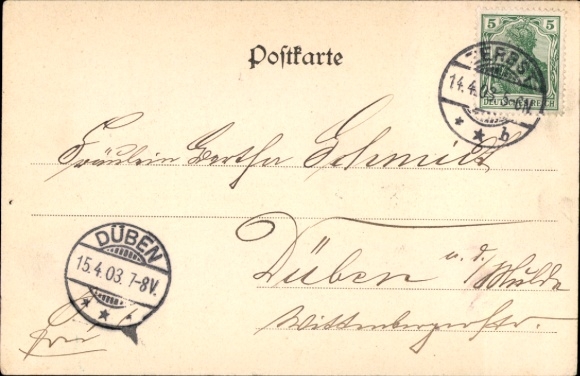 5 5
Postkarte
ZERBST
14.4.03. 5-6N.
* * b
DEUTSCHES REICH
Fräulein Bertha Schmidt
DÜBEN
15.4.03. 7-8V.
* * *
Düben a. d. Mulde
Wittenbergerstr.
Frei